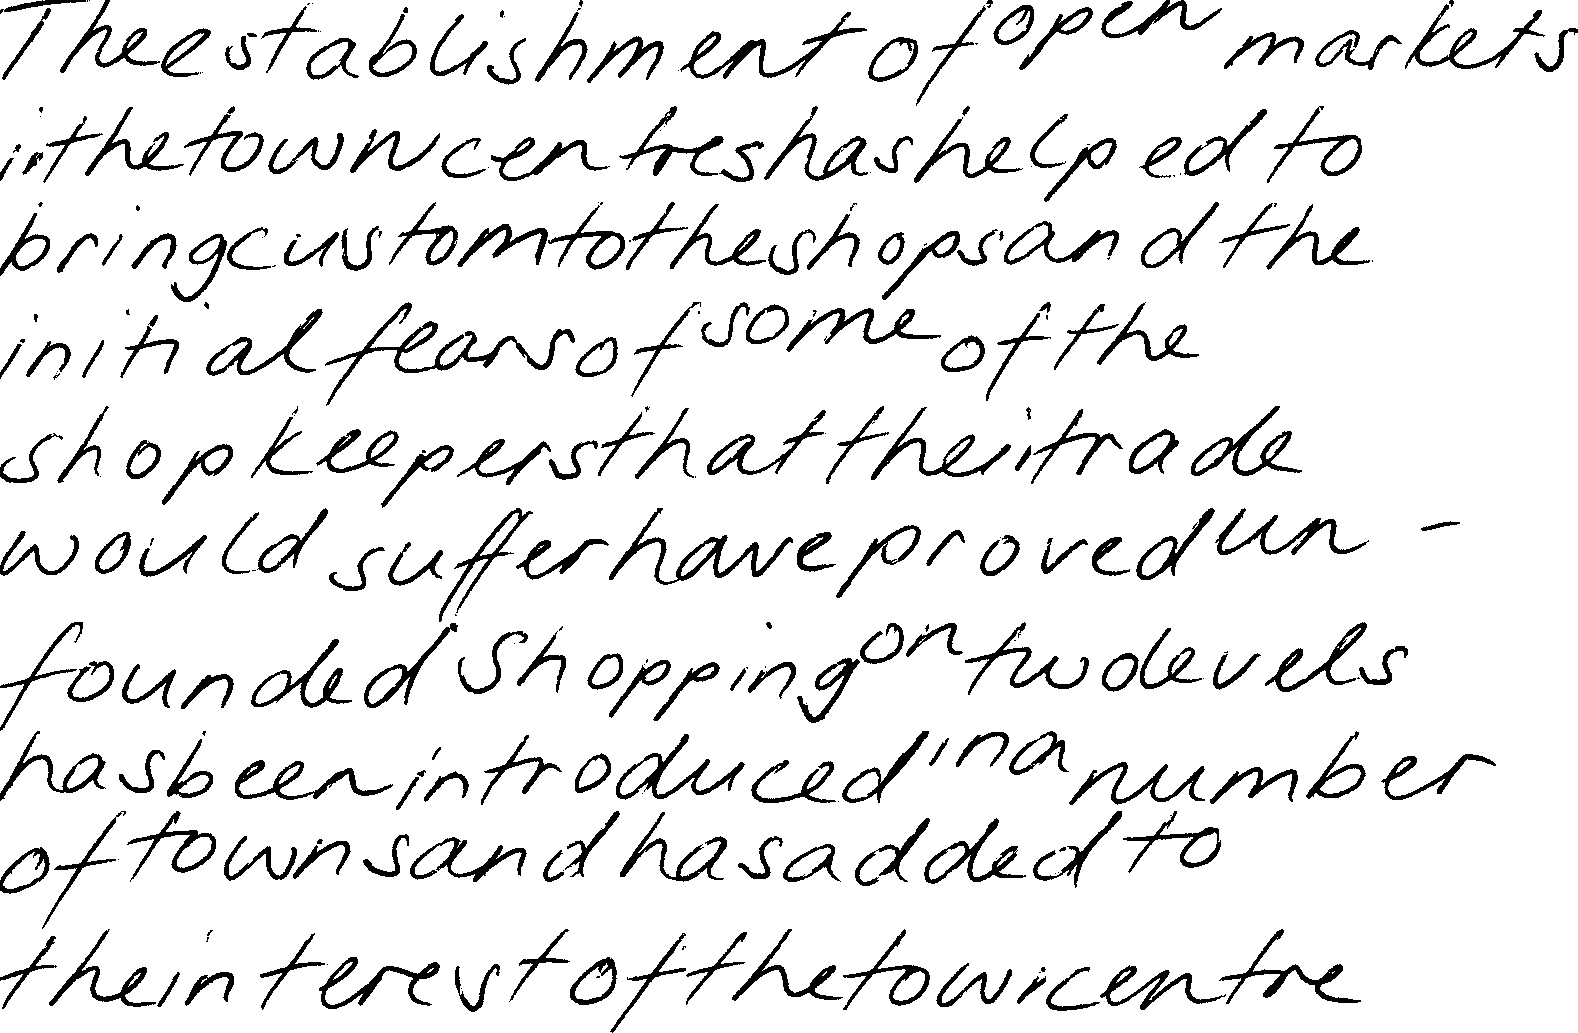 The establishment of open markets
in the town centres has helped to
bring custom to the shops and the
initial fears of some of the
shopkeepers that their trade
would suffer have proved un -
founded Shopping on two levels
has been introduced in a number
of towns and has added to
the interest of the town centre